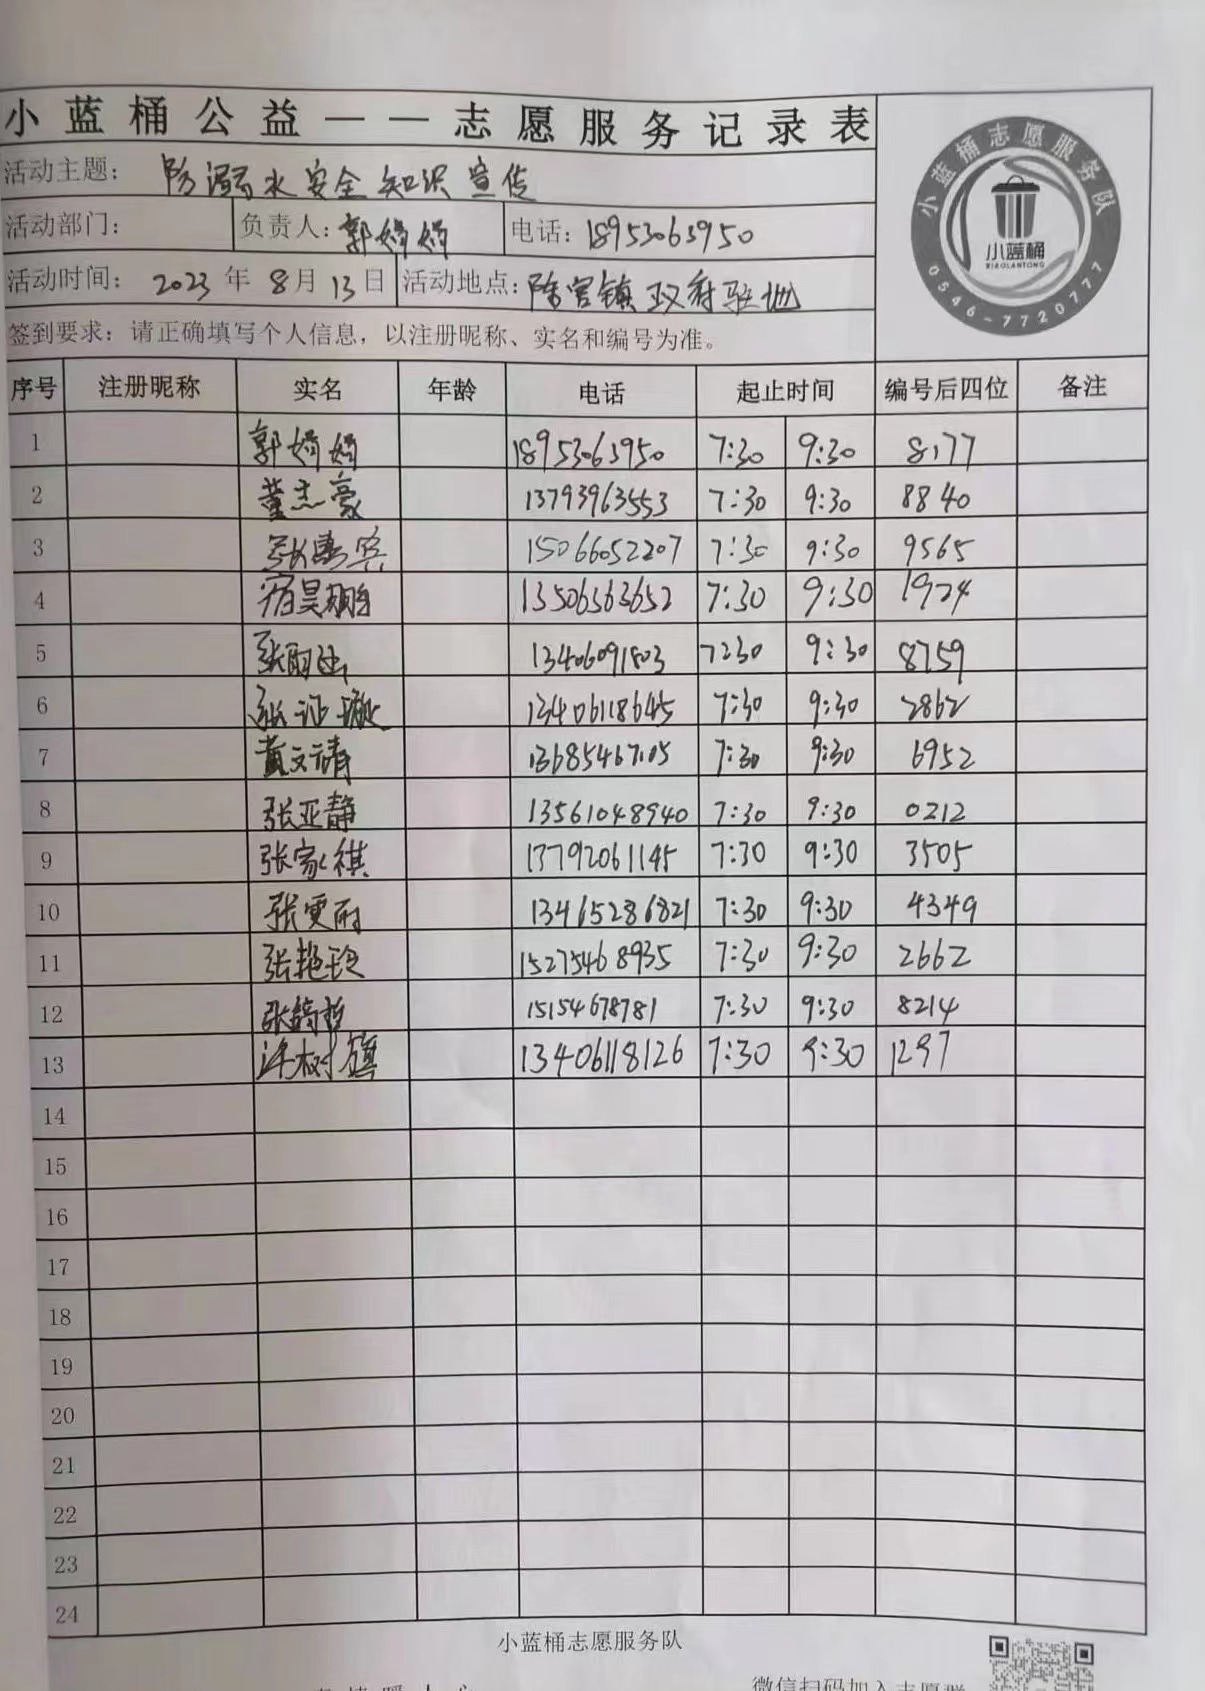 小蓝桶公益——志愿服务记录表
活动主题：防溺水安全知识宣传
活动部门： 负责人：郭娟娟 电话：18953063950
活动时间：2023年8月13日 活动地点：陈官镇政府驻地
签到要求：请正确填写个人信息，以注册昵称、实名和编号为准。
小蓝桶志愿服务队
小蓝桶
XIAOLANTONG
0546-7720777
序号 注册昵称 实名 年龄 电话 起止时间 编号后四位 备注
1 郭娟娟 18953063950 7:30 9:30 8177
2 董志豪 13793963553 7:30 9:30 8840
3 15066052207 7:30 9:30 9565
4 13506363652 7:30 9:30 1924
5 13406091803 7:30 9:30 8759
6 13406118645 7:30 9:30 2862
7 黄文靖 13685467105 7:30 9:30 6952
8 张亚静 13561048940 7:30 9:30 0212
9 张家祺 13792061145 7:30 9:30 3505
10 张雯雨 13465286821 7:30 9:30 4349
11 张艳玲 15275468935 7:30 9:30 2662
12 15154678781 7:30 9:30 8214
13 许树旗 13406118126 7:30 9:30 1297
14
15
16
17
18
19
20
21
22
23
24
小蓝桶志愿服务队
微信扫码加入志愿群